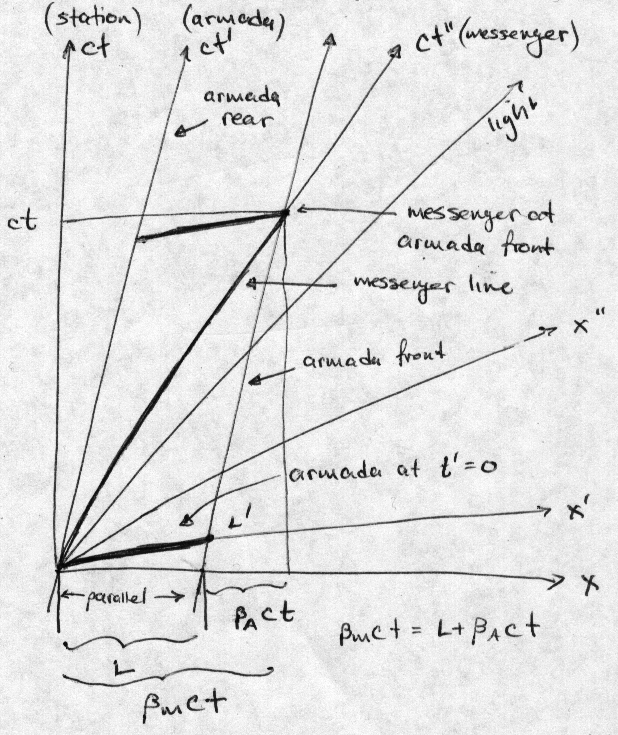 (station) (armada)
ct ct' ct" (messenger)
armada
rear
light
ct
messenger at
armada front
messenger line
x"
armada front
armada at t'=0
L'
x'
x
parallel
β_A ct
β_m ct = L + β_A ct
L
β_m ct